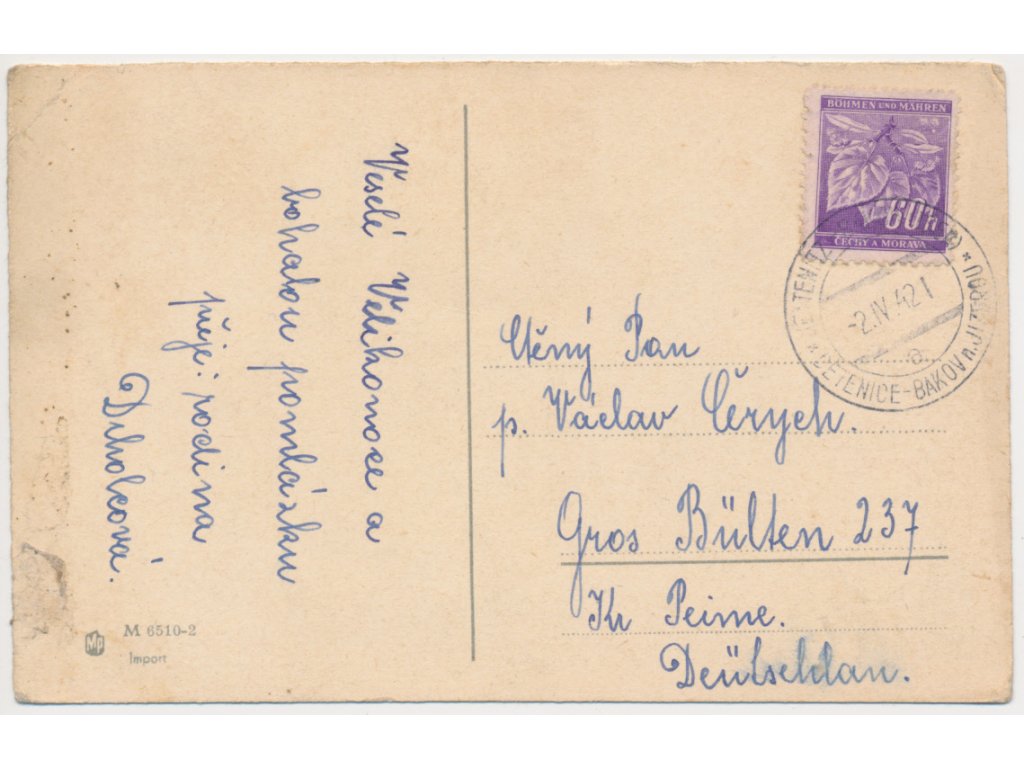 Veselé Velikonoce a
bohatou pomlázku
přeje: rodina
Drholcová.
M 6510-2
Import
BÖHMEN UND MÄHREN
60 h
ČECHY A MORAVA
-2.IV.42 1
DĚTENICE-BAKOV n. J.
a
Ctěný Pan
p. Václav Čerych.
Gros Bülten 237
Kr Peine.
Deütschlan.